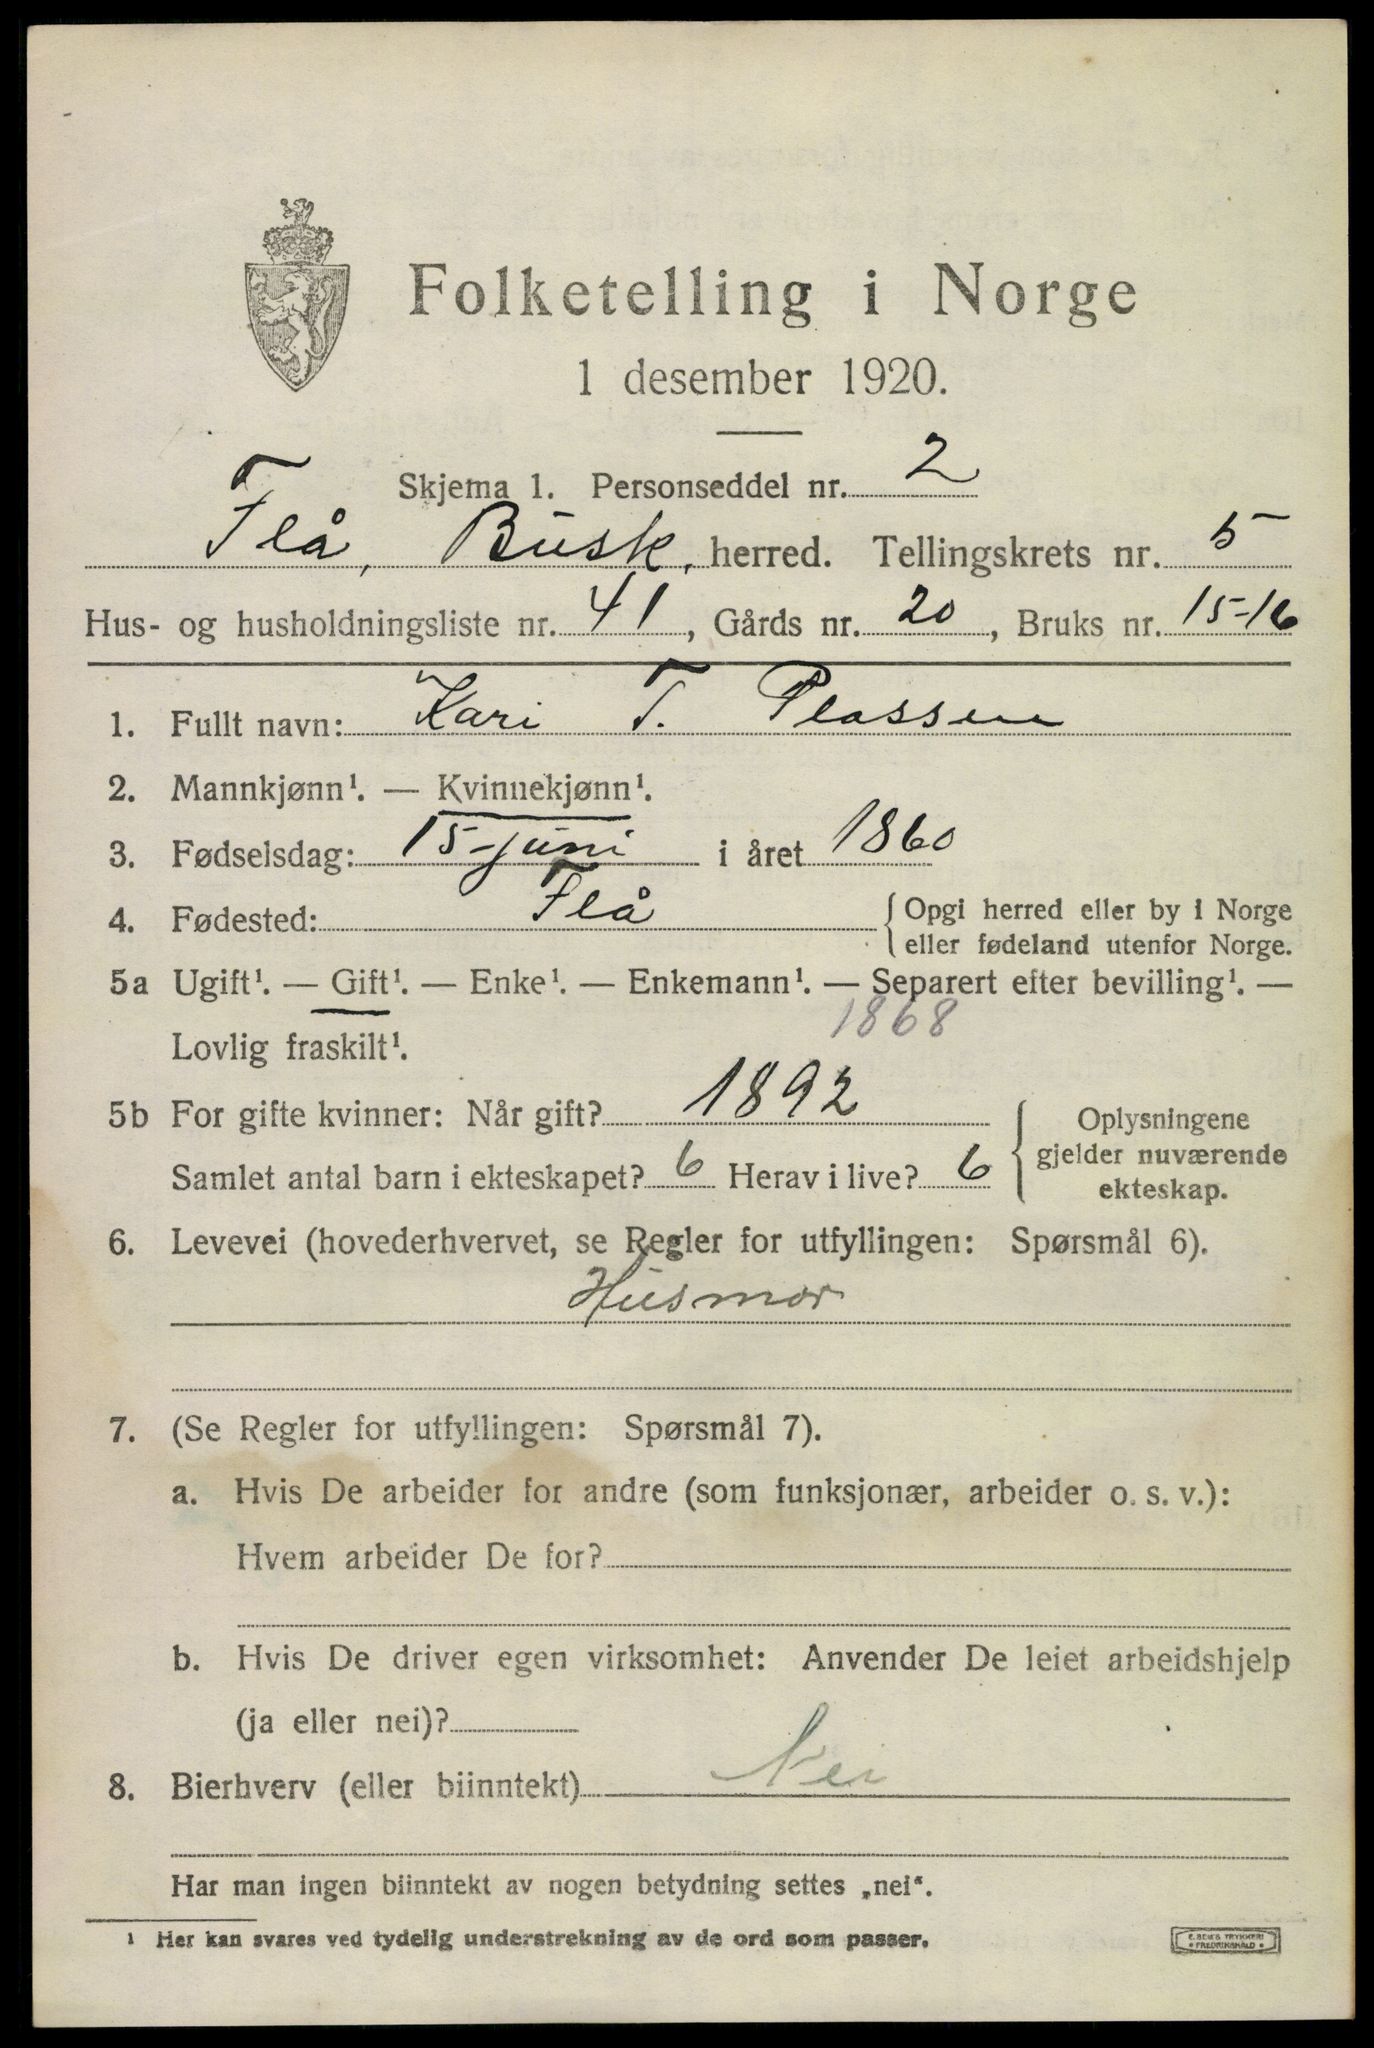 Folketelling i Norge
1 desember 1920.
Skjema 1. Personseddel nr. 2
Flå, Busk. herred. Tellingskrets nr. 5
Hus- og husholdningsliste nr. 41, Gårds nr. 20, Bruks nr. 15-16
1. Fullt navn: Kari T. Plassen
2. Mannkjønn¹. — Kvinnekjønn¹.
3. Fødselsdag: 15-juni i året 1860
4. Fødested: Flå {Opgi herred eller by i Norge
eller fødeland utenfor Norge.
5a Ugift¹. — Gift¹. — Enke¹. — Enkemann¹. — Separert efter bevilling¹. —
1868
Lovlig fraskilt¹.
5b For gifte kvinner: Når gift? 1892
Samlet antal barn i ekteskapet? 6 Herav i live? 6
Oplysningene
gjelder nuværende
ekteskap.
6. Levevei (hovederhvervet, se Regler for utfyllingen: Spørsmål 6).
Husmor
7. (Se Regler for utfyllingen: Spørsmål 7).
a. Hvis De arbeider for andre (som funksjonær, arbeider o. s. v.):
Hvem arbeider De for?
b. Hvis De driver egen virksomhet: Anvender De leiet arbeidshjelp
(ja eller nei)?
8. Bierhverv (eller biinntekt) Nei
Har man ingen biinntekt av nogen betydning settes „nei“.
¹ Her kan svares ved tydelig understrekning av de ord som passer.
E. SEM'S TRYKKERI
• FREDRIKSHALD •